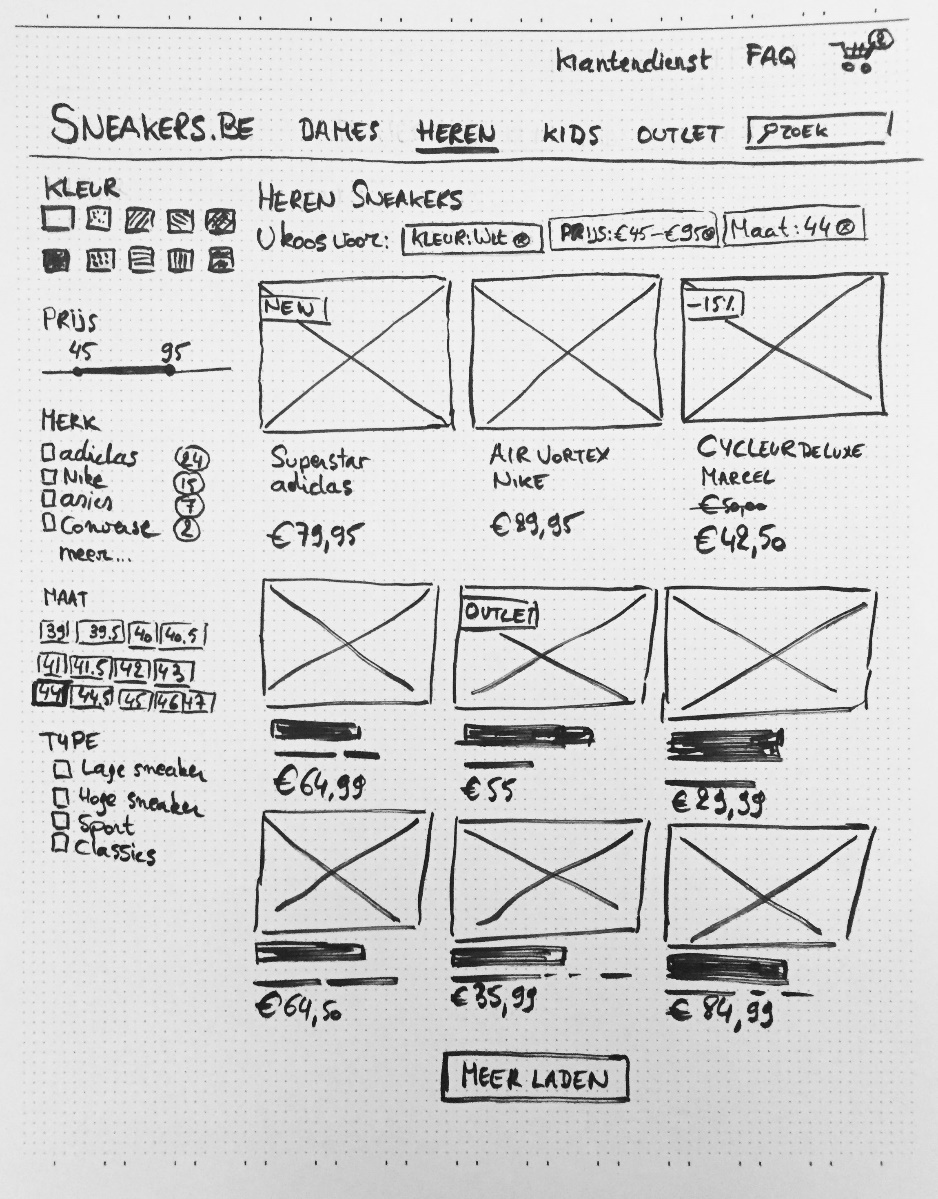 klantendienst FAQ 2
SNEAKERS.BE DAMES HEREN KIDS OUTLET ZOEK
KLEUR
PRIJS
45 95
MERK
adidas 24
Nike 15
asics 7
Converse 2
meer...
MAAT
39 39.5 40 40.5
41 41.5 42 43
44 44.5 45 46 47
TYPE
Lage sneaker
Hoge sneaker
Sport
Classics
HEREN SNEAKERS
U koos voor: KLEUR: Wit ⊗ PRIJS: €45-€95 ⊗ Maat: 44 ⊗
NEW
Superstar
adidas
€79,95
AIR VORTEX
NIKE
€89,95
-15%
CYCLEUR DELUXE
MARCEL
€50,00
€42,50
€64,99
OUTLET
€55
€29,99
€64,50
€35,99
€84,99
MEER LADEN